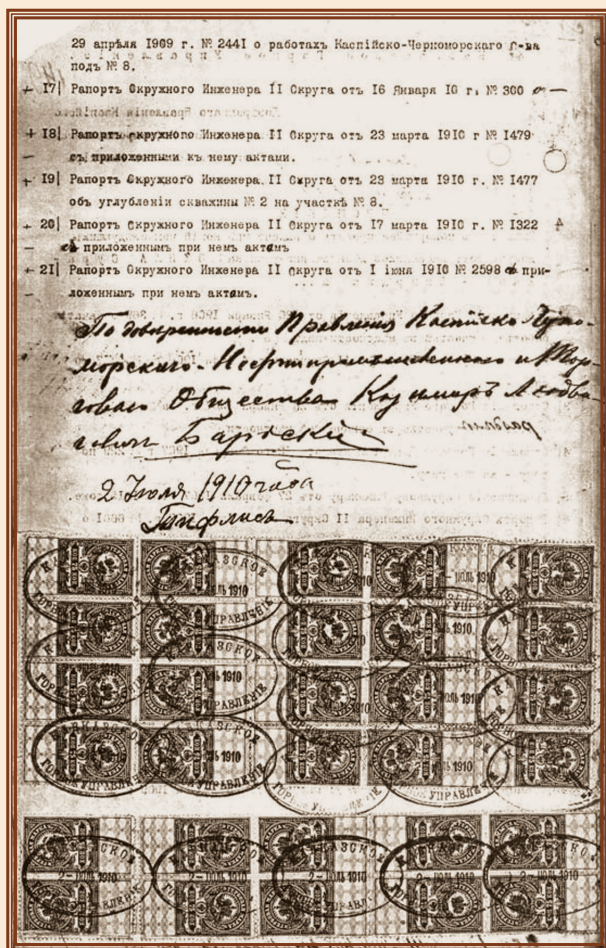 29 апрѣля 1909 г. № 2441 о работахъ Каспійско-Черноморскаго О-ва
подъ № 8.
+ 17| Рапортъ Окружного Инженера II Округа отъ 16 Января 10 г. № 300
+ 18| Рапортъ Окружного Инженера II Округа отъ 23 марта 1910 г № 1479
— съ приложенными къ нему актами.
+ 19| Рапортъ Окружного Инженера II Округа отъ 23 марта 1910 г. № 1477
объ углубленіи скважины № 2 на участкѣ № 8.
+ 20| Рапортъ Окружного Инженера II Округа отъ 17 марта 1910 г. № 1322
— съ приложеннымъ при немъ актомъ
+ 21| Рапортъ Окружного Инженера II Округа отъ 1 іюня 1910 № 2598 съ при-
— ложеннымъ при немъ актомъ.
По довѣренности Правленія Каспійско-Черно-
морскаго Нефтепромышленнаго и Тор-
говаго Общества Казимиръ Людви-
говичъ Бардскій
2 Іюля 1910 года
Тифлисъ
КАВКАЗСКОЕ
ГОРНОЕ УПРАВЛЕНІЕ
2 - ІЮЛЬ 1910